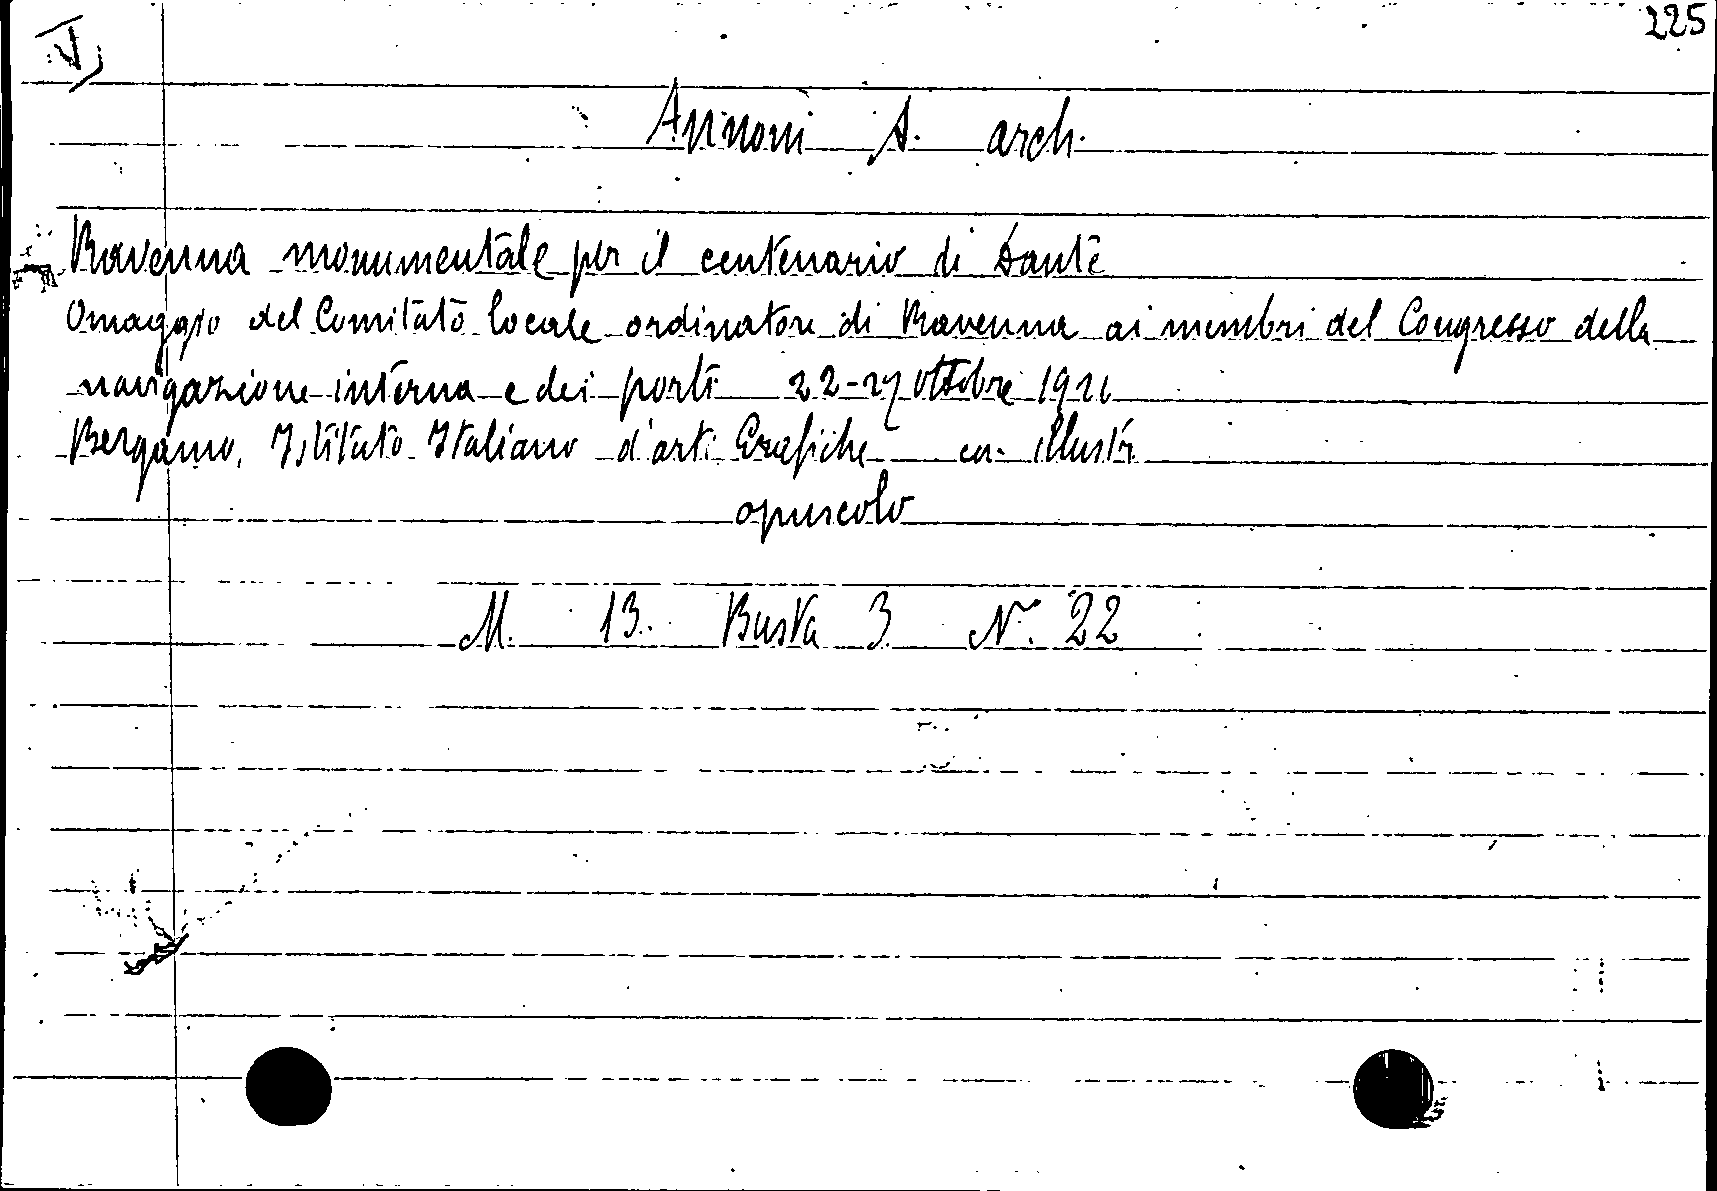 225
V
Annoni A. arch.
Ravenna monumentale per il centenario di Dante
Omaggio del Comitato locale ordinatore di Ravenna ai membri del Congresso della
navigazione interna e dei porti 22-27 ottobre 1921
Bergamo, Istituto Italiano d'arti Grafiche con illustr
opuscolo
M. 13. Busta 3 N. 22